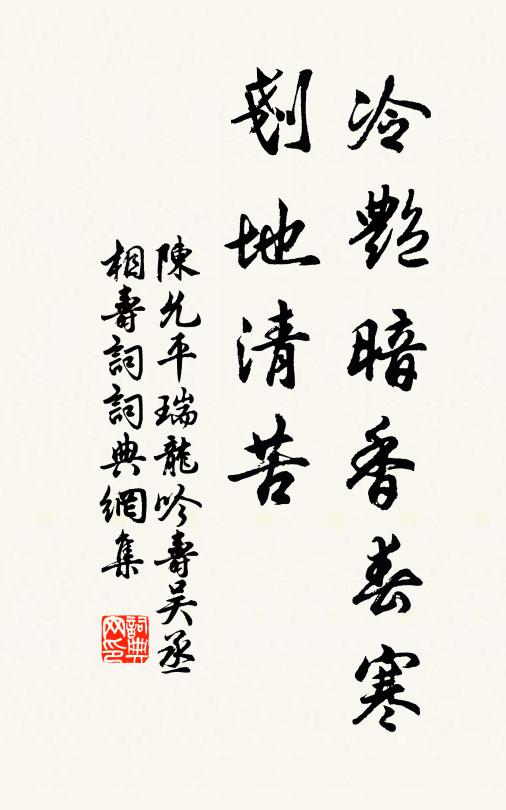 冷艷暗香春寒
剗地清苦
陳允平瑞龍吟壽吴丞
相壽詞詞典網集
詞典
网印